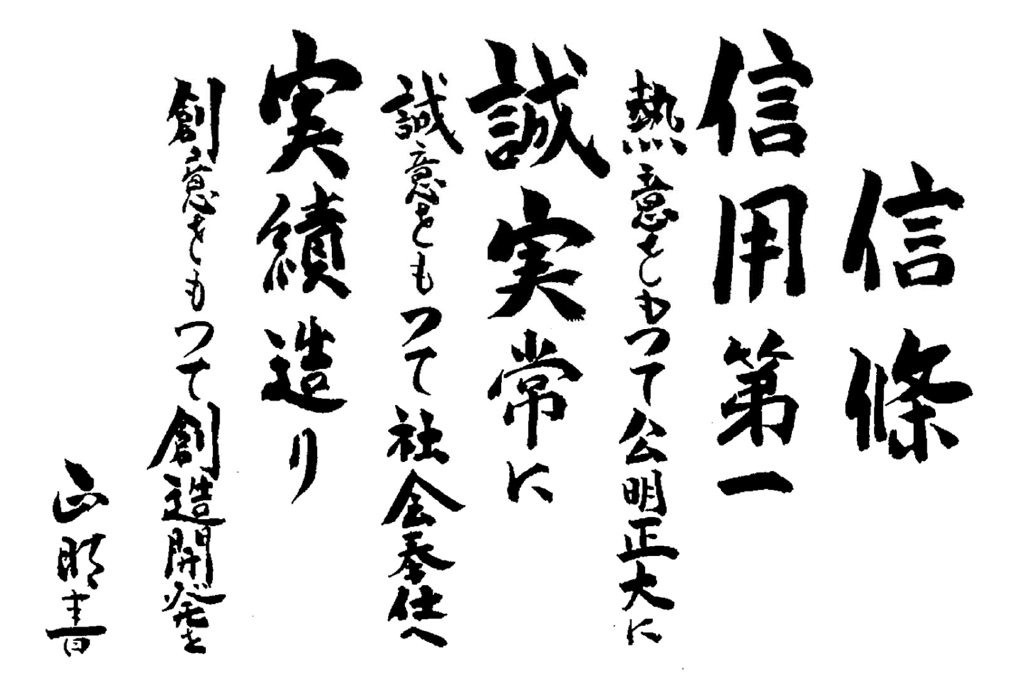 信條
信用第一
熱意をもつて公明正大に
誠実常に
誠意をもつて社会奉仕へ
実績造り
創意をもつて創造開発を
正明書